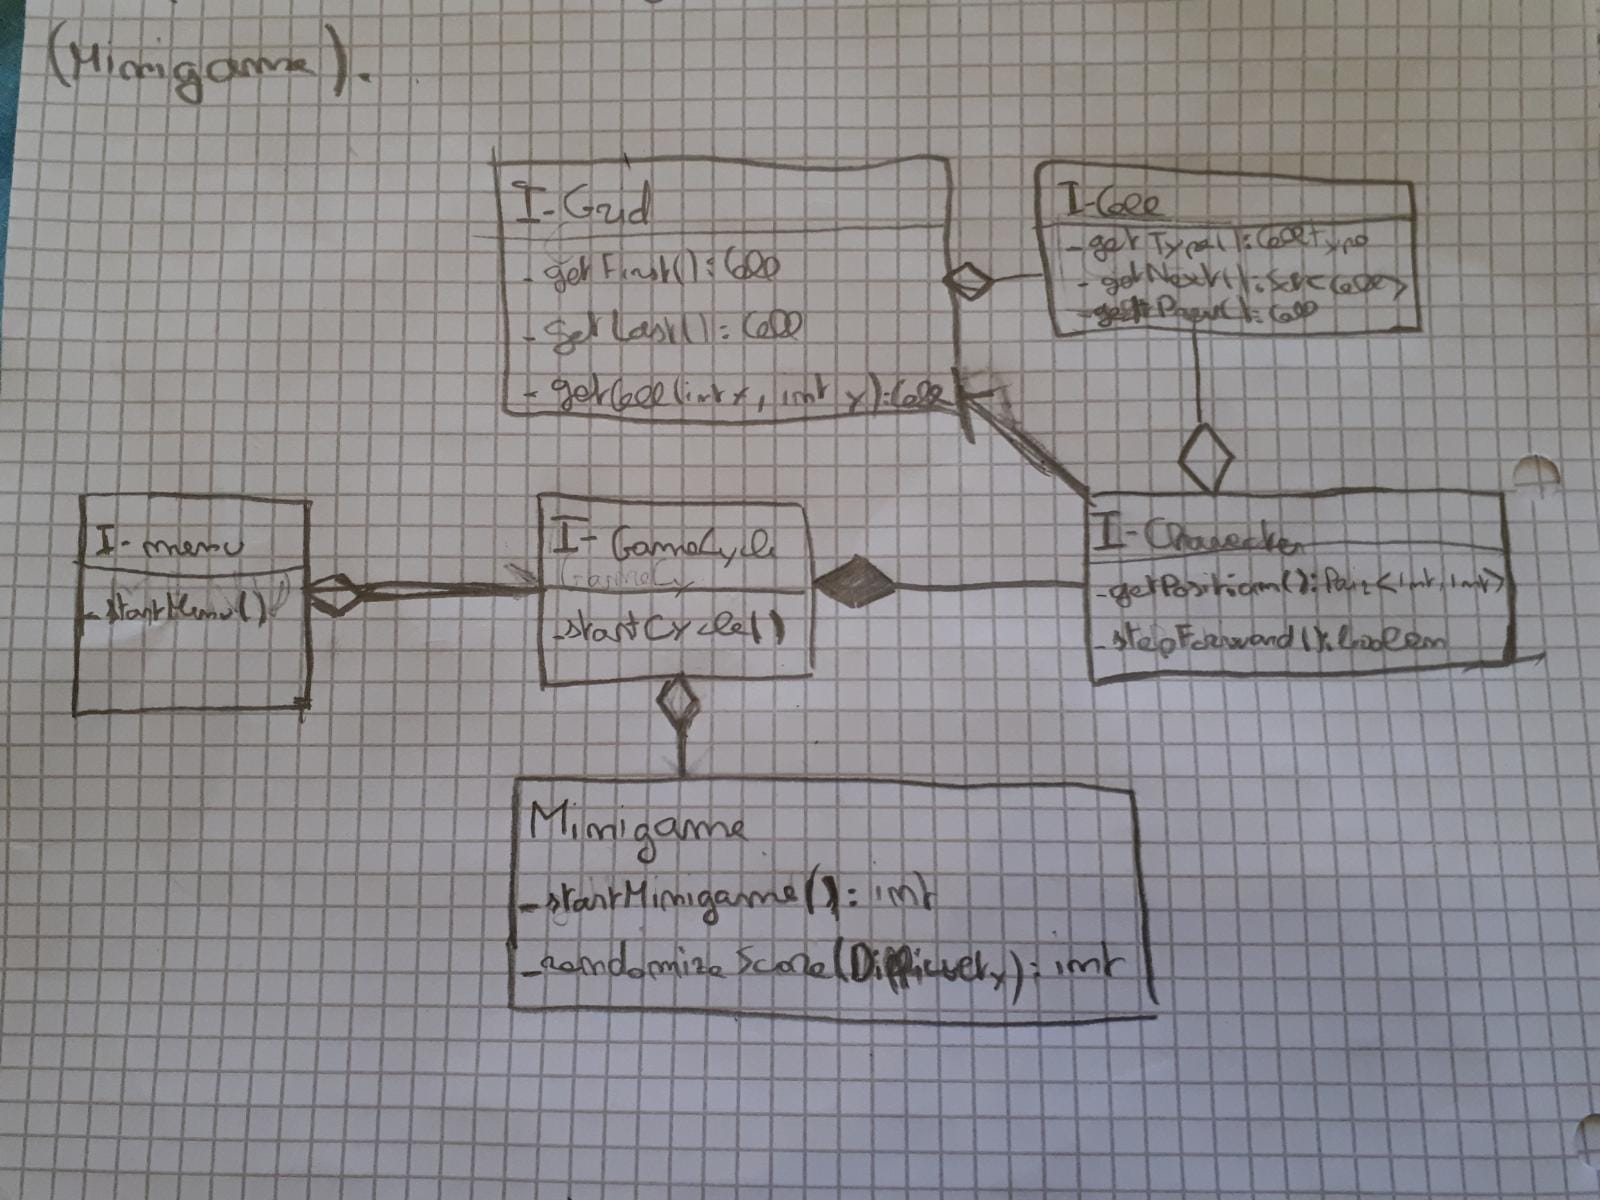 (Minigame).
I-Grid
- getFirst(): Cell
- getLast(): Cell
- getCell(int x, int y): Cell
I-Cell
- getType(): CellType
- getNext(): Set<Cell>
- getPrev(): Cell
I-menu
- startMenu()
I-GameCycle
GameCy
- startCycle()
I-Character
- getPosition(): Pair<int, int>
- stepForward(): boolean
Minigame
- startMinigame(): int
- randomizeScore(Difficulty): int